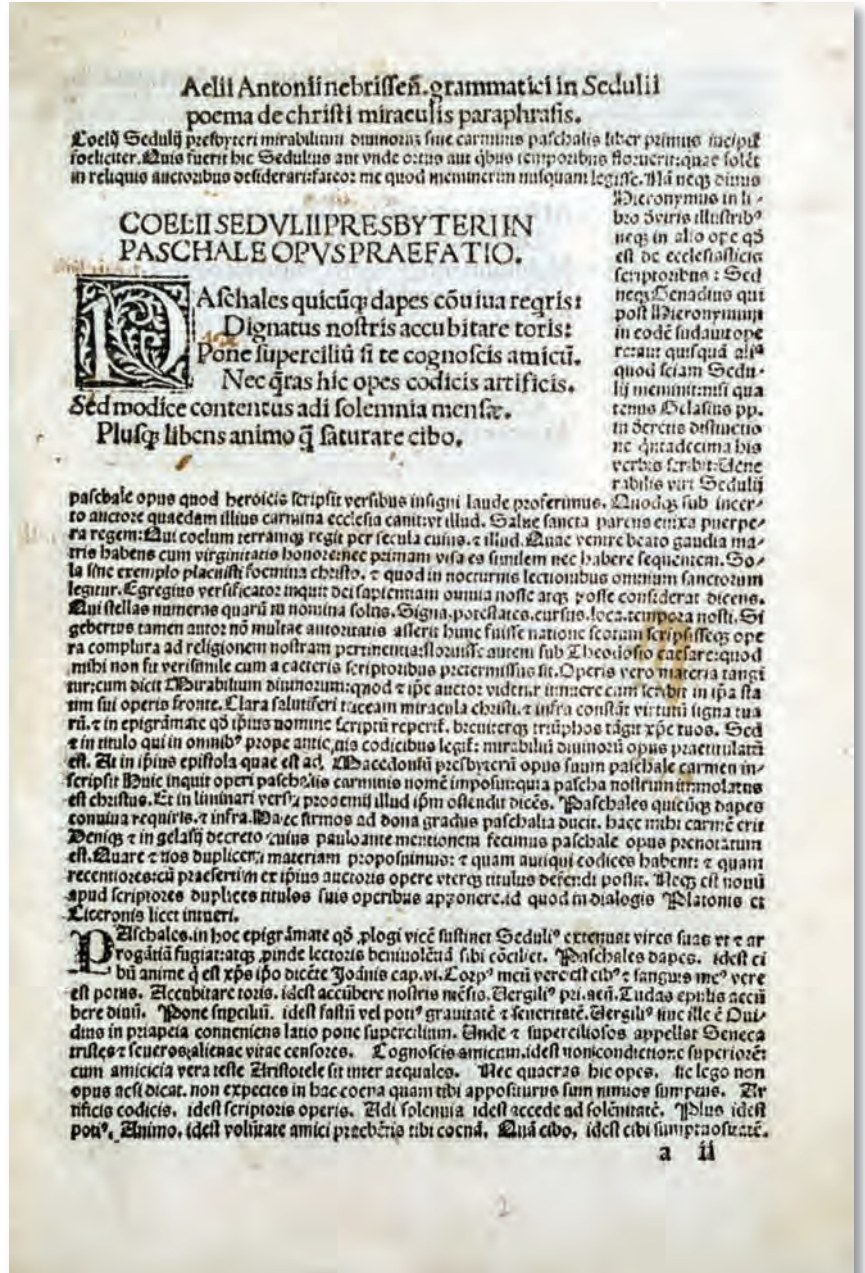 Aelii Antonii nebrissen̄. grammatici in Sedulii
poema de christi miraculis paraphrasis.
Coelij Sedulij presbyteri mirabilium diuinorū siue carminis paschalis liber primus incipit
foeliciter. Quis fuerit hic Sedulius aut vnde ortus aut q̇bus temporibus floruerit: quae solēt
in reliquis auctoribus desiderari: fateor me quod meminerim nusquam legisse. Nā neqȝ diuus
Hieronymus in li-
bro de viris illustribꝰ
neqȝ in alio ope qđ
est de ecclesiasticis
scriptoribus: Sed
neqȝ Genadius qui
post Hieronymum
in codē sudauit ope
re: aut quisquā aliꝰ
quod sciam Sedu-
lij meminit: nisi qua
tenus Gelasius pp.
in decretis distinctio
ne q̇ntadecima his
verbis scribit: Uene
rabilis viri Sedulij
COELII SEDVLII PRESBYTERI IN
PASCHALE OPVS PRAEFATIO.
PAschales quicūqȝ dapes cōuiua reqris:
Dignatus nostris accubitare toris:
Pone superciliū si te cognoscis amicū.
Nec q̄ras hic opes codicis artificis.
Sed modice contentus adi solemnia mensæ.
Plusqȝ libens animo q̄ saturare cibo.
paschale opus quod heroicis scripsit versibus insigni laude proferimus. Quodqȝ sub incer-
to auctore quaedam illius carmina ecclesia canit: vt illud. Salue sancta parens enixa puerpe-
ra regem: Qui coelum terramqȝ regit per secula cuius. ⁊ illud. Quae ventre beato gaudia ma-
tris habens cum virginitatis honore: nec primam visa es similem nec habere sequentem. So-
la sine exemplo placuisti foemina christo. ⁊ quod in nocturnis lectionibus omnium sanctorum
legitur. Egregius versificator inquit dei sapientiam omnia nosse atqȝ posse considerat dicens.
Qui stellas numeras quarū tu nomina solus. Signa. potestates. cursus. loca. tempora nosti. Si
gebertus tamen autor nō multae autoritatis asserit hunc fuisse natione scotum scripsisseqȝ ope
ra complura ad religionem nostram pertinentia: floruisse autem sub Theodosio caesare: quod
mihi non fit verisimile cum a caeteris scriptoribus pretermissus sit. Operis vero materia tangi
tur: cum dicit Mirabilium diuinorum: quod ⁊ ipe auctor videtur innuere cum scribit in ipa sta
tim sui operis fronte. Clara salutiferi taceam miracula christi. ⁊ infra constāt virtutū signa tua
rū. ⁊ in epigrāmate qđ ipius nomine scriptū reperit̄. breuiterqȝ triūphos tāgit xp̄e tuos. Sed
⁊ in titulo qui in omnibꝰ prope antiquis codicibus legit̄: mirabiliū diuinorū opus praetitulatū
est. At in ipius epistola quae est ad. Macedoniū presbyterū opus suum paschale carmen in-
scripsit Huic inquit operi paschalis carminis nomē imposui: quia pascha nostrum immolatus
est christus. Et in liminari versu prooemij illud ip̄m ostendit dicēs. Paschales quicūqȝ dapes
conuiua requiris. ⁊ infra. Haec firmos ad dona gradus paschalia ducit. haec mihi carmē erit
Deniqȝ ⁊ in gelasij decreto cuius pauloante mentionem fecimus paschale opus prenotatum
est. Quare ⁊ nos duplicem materiam proposuimus: ⁊ quam antiqui codices habent: ⁊ quam
recentiores: cū praesertim ex ipius auctoris opere vterqȝ titulus defendi possit. Neqȝ est nouū
apud scriptores duplices titulos suis operibus apponere. id quod in dialogis Platonis et
Ciceronis licet intueri.
PAschales. in hoc epigrāmate qđ .plogi vicē sustinet Seduliꝰ extenuat vires suas vt ⁊ ar
rogātiā fugiat: atqȝ .pinde lectoris beniuolētiā sibi cōciliet. Paschales dapes. idest ci
bū anime q̇ est xp̄s ip̄o dicēte Joānis cap. vi. Corpꝰ meū vere est cibꝰ ⁊ sanguis meꝰ vere
est potus. Accubitare toris. idest accūbere nostris mēsis. Vergiliꝰ pri. aeñ. Tu das epulis accū
bere diuū. Pone supciliū. idest fastū vel potiꝰ grauitatē ⁊ seueritatē. Vergiliꝰ siue ille ē Oui-
dius in priapeia conueniens latio pone supercilium. Unde ⁊ superciliosos appellat Seneca
tristes ⁊ seueros: alienae vitae censores. Cognoscis amicum. idest non conditione superiorē:
cum amicicia vera teste Aristotele sit inter aequales. Nec quaeras hic opes. sic lego non
opus acsi dicat. non expectes in hac coena quam tibi appositurus sum nimios sumptus. Ar
tificis codicis. idest scriptoris operis. Adi solennia idest accede ad solēnitatē. Plus idest
potiꝰ. Animo. idest volūtate amici praebētis tibi coenā. Quā cibo, idest cibi sumptuositatē.
a ii
2